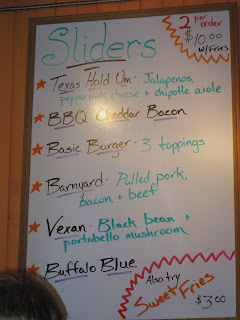 Sliders
2 per order
$10.00
w/Fries
Texas Hold Um - Jalapenos,
pepperjack cheese + chipotle aiole
BBQ Cheddar Bacon
Basic Burger - 3 toppings
Barnyard - Pulled pork,
bacon + beef
Vexan - Black bean +
portabello mushroom
Buffalo Blue
Also try
Sweet Fries
$3.00